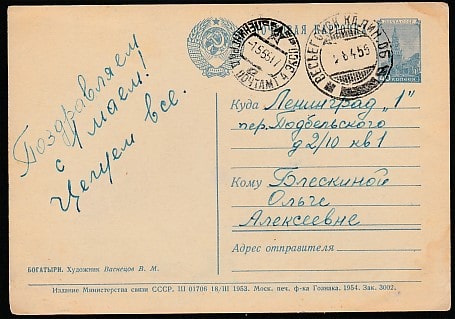 ПОЧТОВАЯ КАРТОЧКА
Поздравляем
с 1 маем!
Целуем все.
Куда Ленинград „1"
пер. Подбельского
д 2/10 кв 1
Кому Блескиной
Ольге
Алексеевне
Адрес отправителя
БОГАТЫРИ. Художник Васнецов В. М.
Издание Министерства связи СССР. Ш 01706 18/III 1953. Моск. печ. ф-ка Гознака. 1954. Зак. 3002.